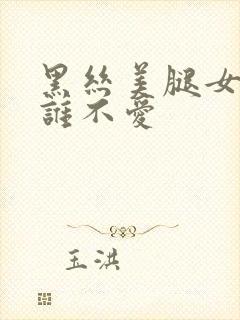 黑丝美腿女
誰不愛
玉洪